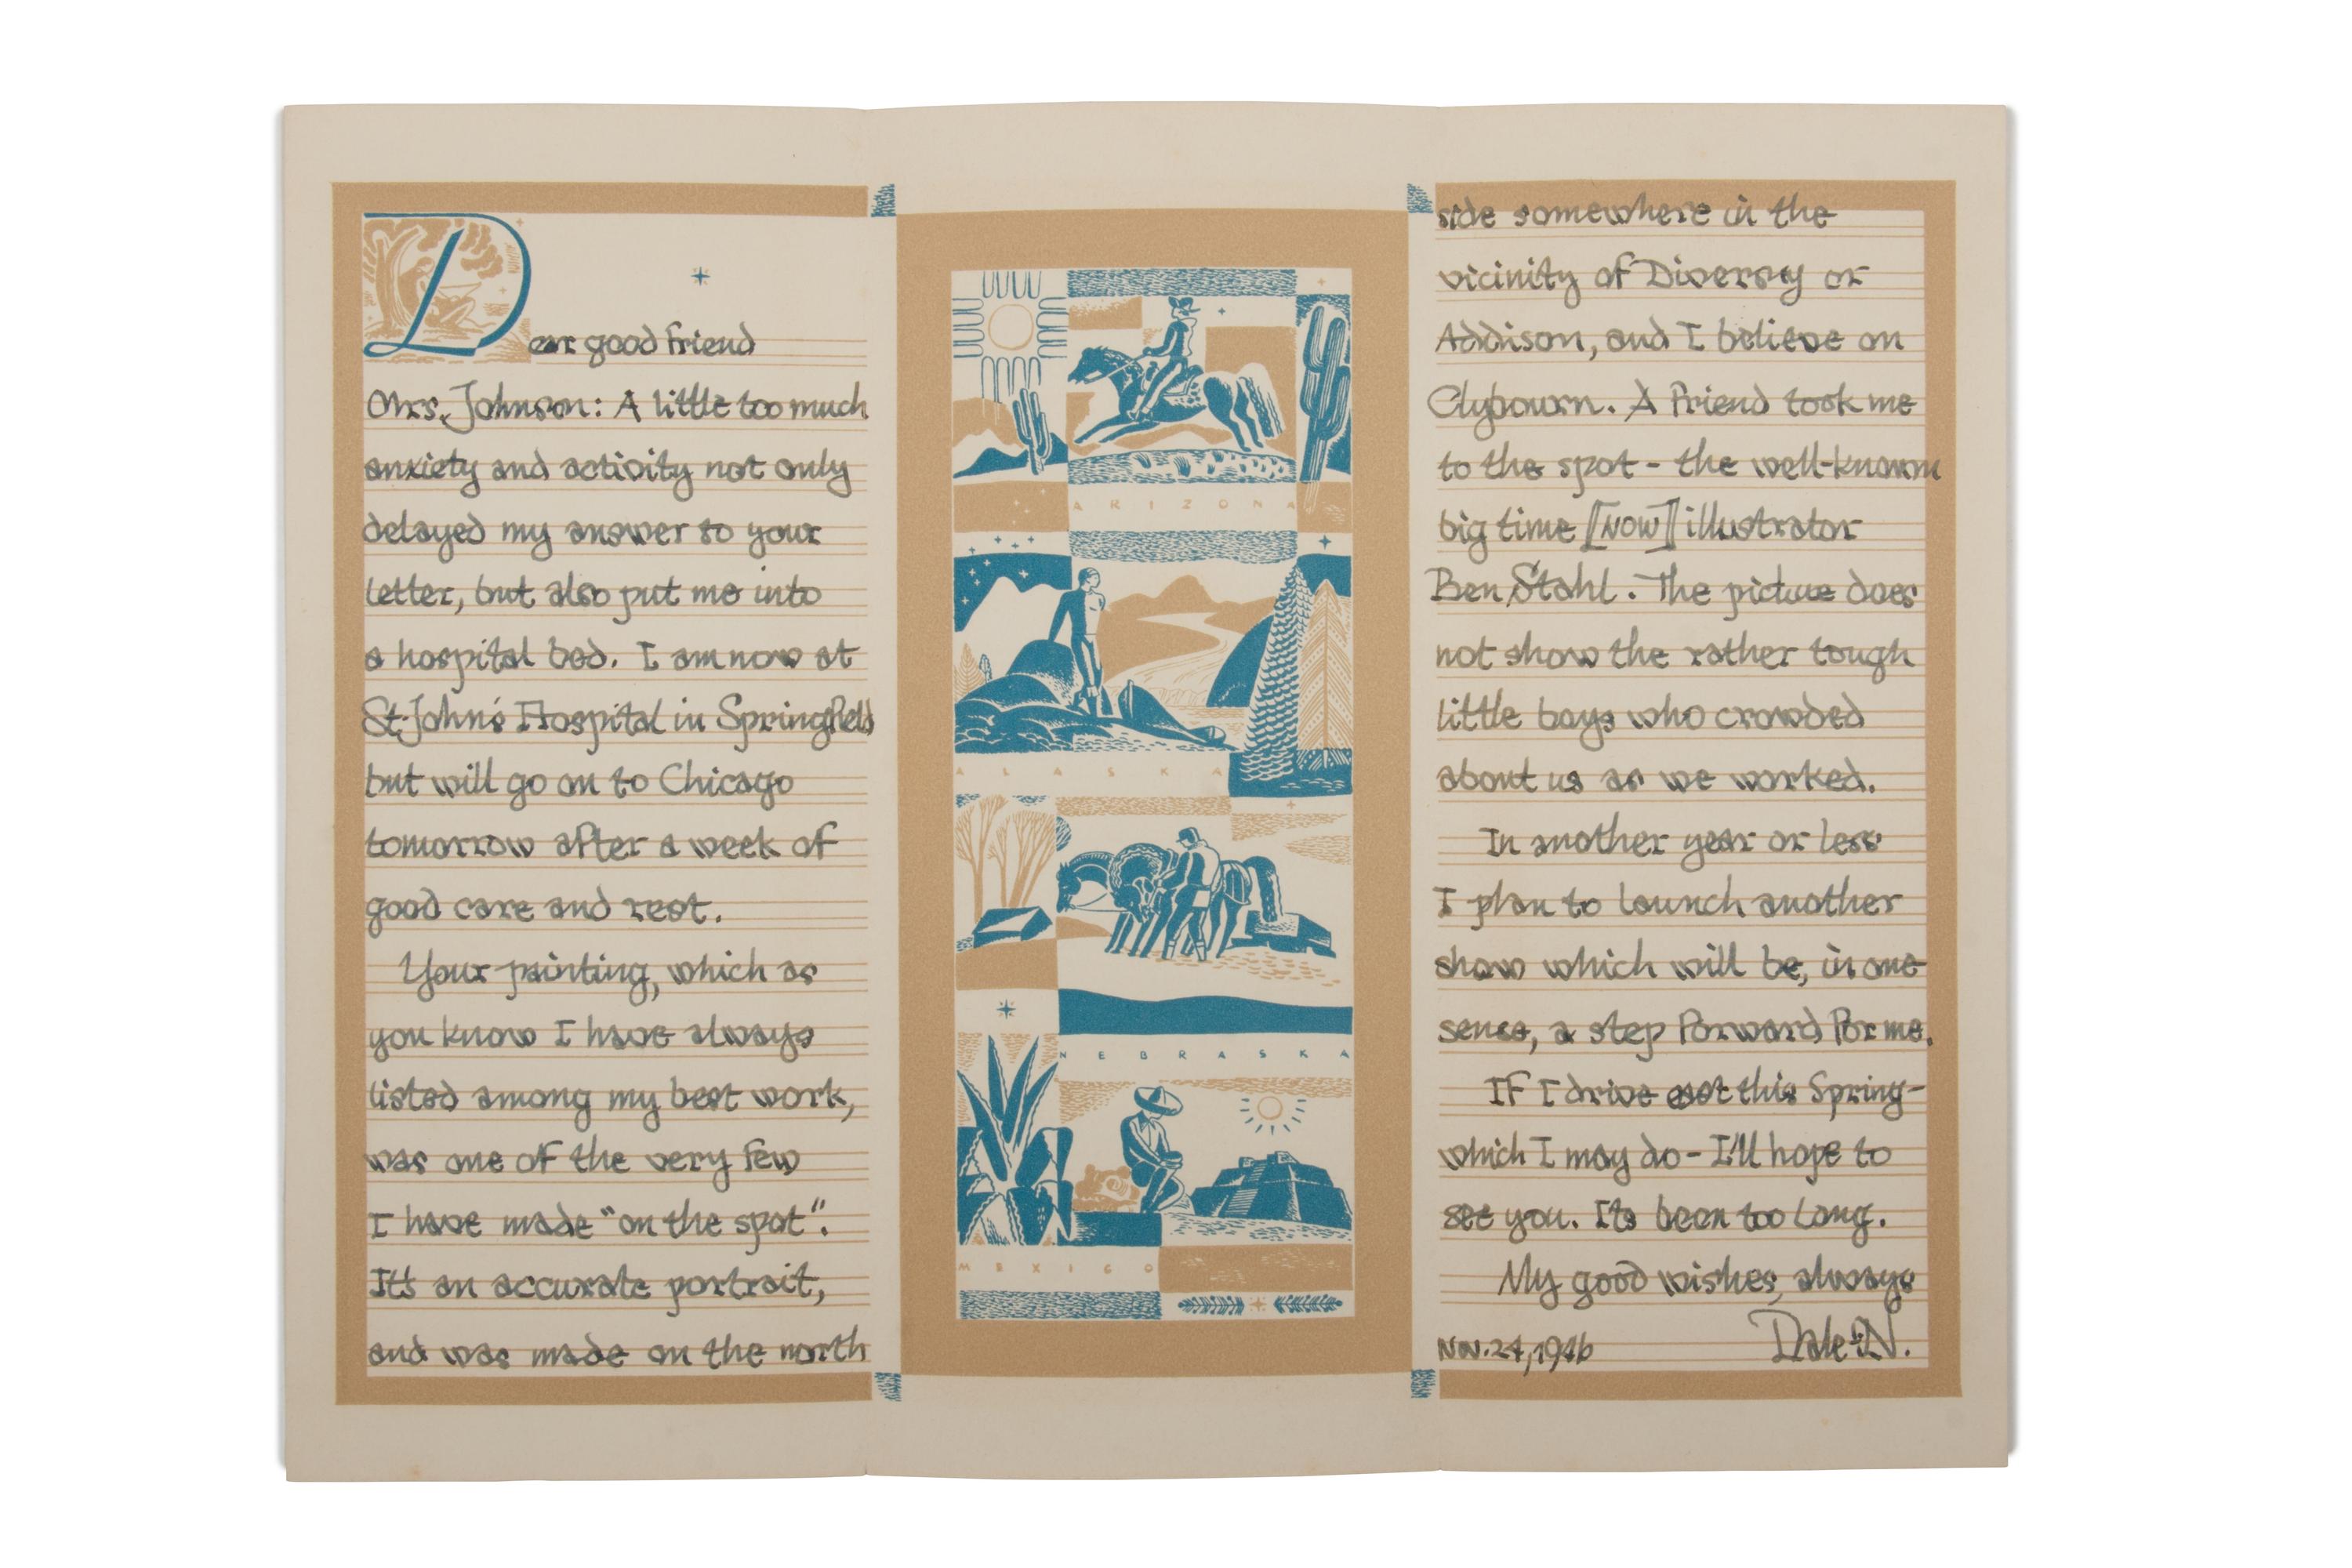 Dear good friend
Mrs. Johnson: A little too much
anxiety and activity not only
delayed my answer to your
letter, but also put me into
a hospital bed. I am now at
St. John's Hospital in Springfield
but will go on to Chicago
tomorrow after a week of
good care and rest.
Your painting, which as
you know I have always
listed among my best work,
was one of the very few
I have made "on the spot".
It's an accurate portrait,
and was made on the north
ARIZONA
ALASKA
NEBRASKA
MEXICO
side somewhere in the
vicinity of Diversey or
Addison, and I believe on
Clybourn. A friend took me
to the spot - the well-known
big time [NOW] illustrator
Ben Stahl. The picture does
not show the rather tough
little boys who crowded
about us as we worked.
In another year or less
I plan to launch another
show which will be, in one
sense, a step forward for me.
If I drive east this Spring-
which I may do - I'll hope to
see you. Its been too long.
My good wishes, always
Nov. 24, 1946 Dale N.